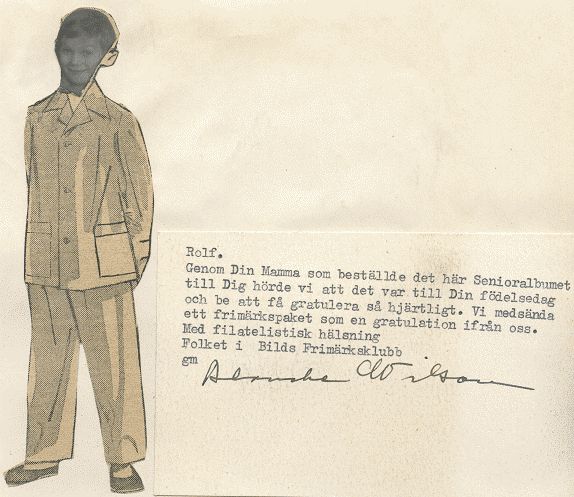 Rolf.
Genom Din Mamma som beställde det här Senioralbumet
till Dig hörde vi att det var till Din födelsedag
och be att få gratulera så hjärtligt. Vi medsända
ett frimärkspaket som en gratulation ifrån oss.
Med filatelistisk hälsning
Folket i Bilds Frimärksklubb
gm
Blanche Wilson